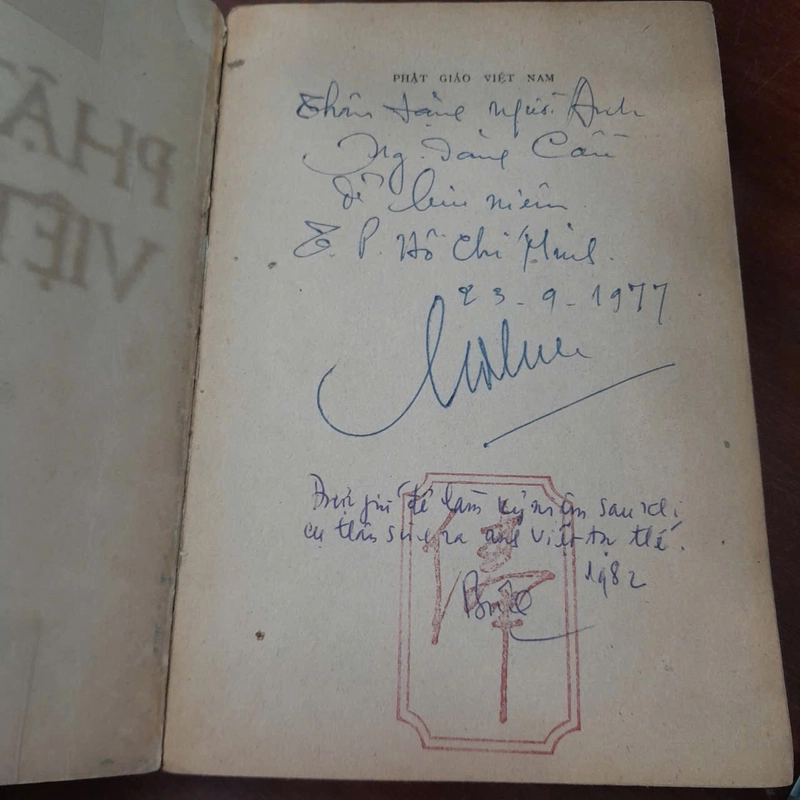 PHẬT
VIỆT
PHẬT GIÁO VIỆT NAM
Thân tặng người Anh
Ng. Đăng
để lưu niệm
T. P. Hồ Chí Minh.
23-9-1977
Được giữ để làm kỷ niệm sau khi
cụ thân sinh ra ông Việt tạ thế.
1982